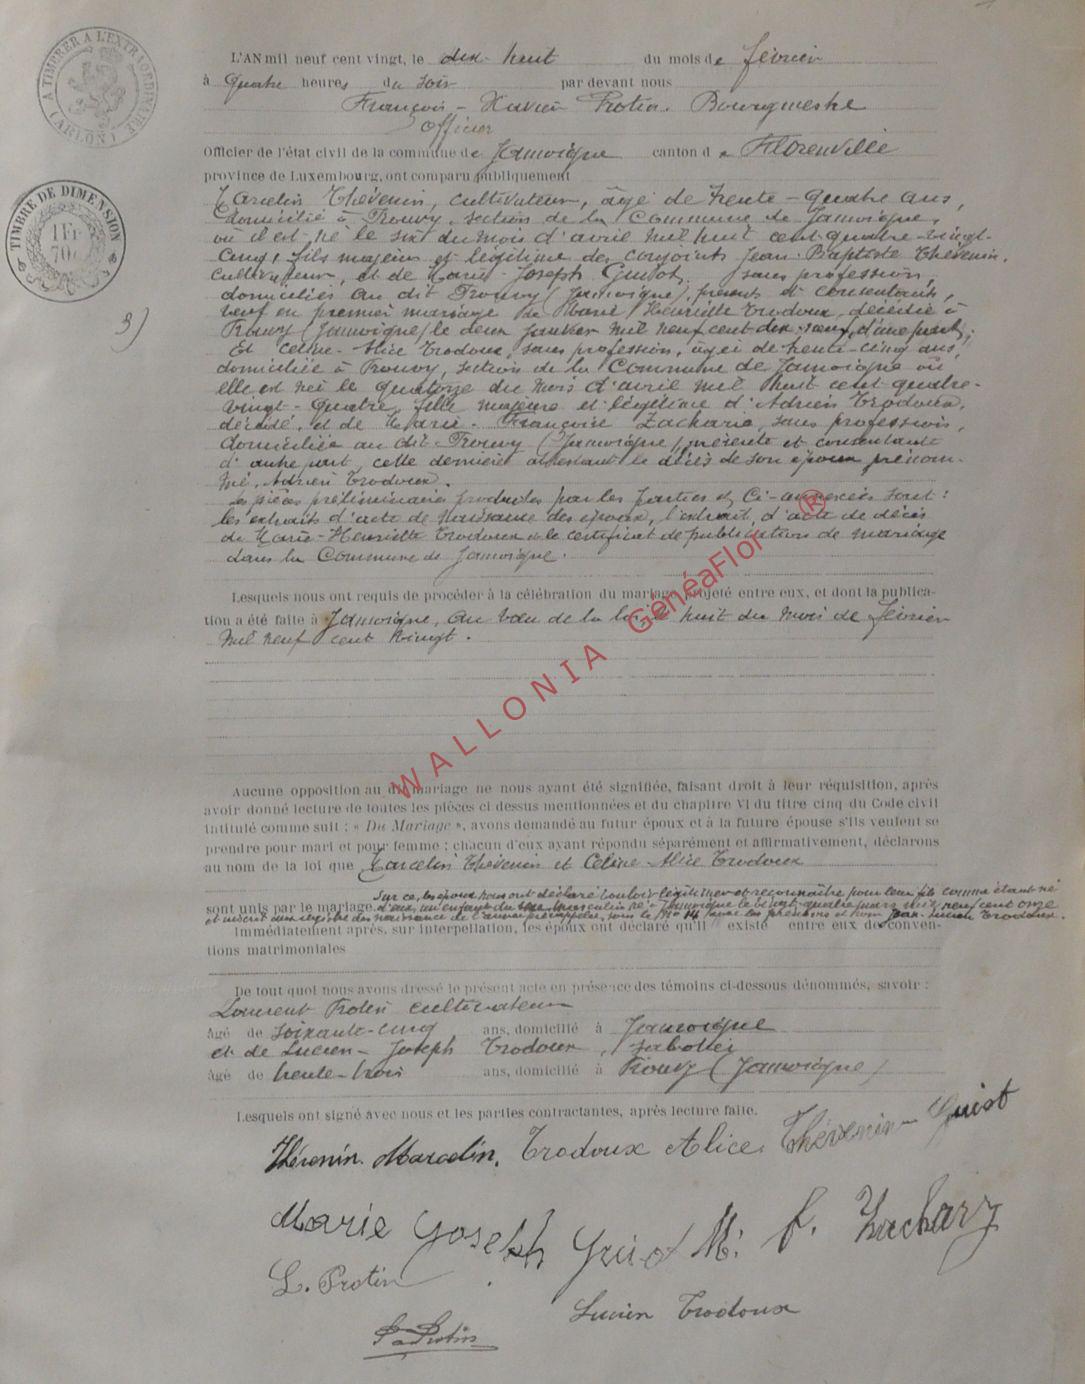 A TIMBRER A L'EXTRAORDINAIRE (ARLON)
TIMBRE DE DIMENSION
1 Fr
70c
3)
L'AN mil neuf cent vingt, le dix-huit du mois de février
à quatre heures du soir par devant nous
François-Xavier Protin, Bourgmestre
Officier
Officier de l'état civil de la commune de Jamoigne canton de Florenville
province de Luxembourg, ont comparu publiquement
Marcelin Thévenin, cultivateur, âgé de trente-quatre ans,
domicilié à Prouvy, section de la Commune de Jamoigne,
où il est né le six du mois d'avril mil huit cent quatre-vingt-
cinq, fils majeur et légitime des conjoints Jean-Baptiste Thévenin,
cultivateur, et de Marie-Joseph Guiot, sans profession,
domiciliés au dit Prouvy (Jamoigne), présents et consentants,
veuf en premier mariage de Marie-Henriette Trodoux, décédée à
Prouvy (Jamoigne) le deux janvier mil neuf cent dix-neuf, d'une part;
Et Céline-Alice Trodoux, sans profession, âgée de trente-cinq ans,
domiciliée à Prouvy, section de la Commune de Jamoigne où
elle est née le quatorze du mois d'avril mil huit cent quatre-
vingt-quatre, fille majeure et légitime d'Adrien Trodoux,
décédé, et de Marie-Françoise Zacharie, sans profession,
domiciliée au dit Prouvy (Jamoigne), présente et consentante
d'autre part, cette dernière attestant le décès de son époux prénom-
mé, Adrien Trodoux.
Les pièces préliminaires produites par les parties et ci-annexées sont :
les extraits d'acte de naissance des époux, l'extrait d'acte de décès
de Marie-Henriette Trodoux et le certificat de publication de mariage
dans la Commune de Jamoigne.
Lesquels nous ont requis de procéder à la célébration du mariage projeté entre eux, et dont la publica-
tion a été faite à Jamoigne, au vœu de la loi le huit du mois de février
mil neuf cent vingt.
WALLONIA GenéaFlor ®
Aucune opposition au dit mariage ne nous ayant été signifiée, faisant droit à leur réquisition, après
avoir donné lecture de toutes les pièces ci dessus mentionnées et du chapitre VI du titre cinq du Code civil
intitulé comme suit : « Du Mariage », avons demandé au futur époux et à la future épouse s'ils veulent se
prendre pour mari et pour femme ; chacun d'eux ayant répondu séparément et affirmativement, déclarons
au nom de la loi que Marcelin Thévenin et Céline-Alice Trodoux
Sur ce, les époux nous ont déclaré vouloir légitimer et reconnaître pour leur fils comme étant né
sont unis par le mariage. d'eux, un enfant du sexe masculin né à Jamoigne le vingt-quatre mars mil neuf cent onze
et inscrit aux registres de naissance de l'année précitée, sous le N° 14 avec les prénoms et nom Jean-Lucien Trodoux.
Immédiatement après, sur interpellation, les époux ont déclaré qu'il existe entre eux de conven-
tions matrimoniales
De tout quoi nous avons dressé le présent acte en présence des témoins ci-dessous dénommés, savoir :
Laurent Protin cultivateur
âgé de soixante-cinq ans, domicilié à Jamoigne
et de Lucien-Joseph Trodoux, sabotier
âgé de trente-trois ans, domicilié à Prouvy (Jamoigne)
Lesquels ont signé avec nous et les parties contractantes, après lecture faite.
Thévenin Marcelin. Trodoux Alice. Thévenin-Guiot
Marie Joseph Guiot M. f. Zachary
L. Protin
Lucien Trodoux
Protin